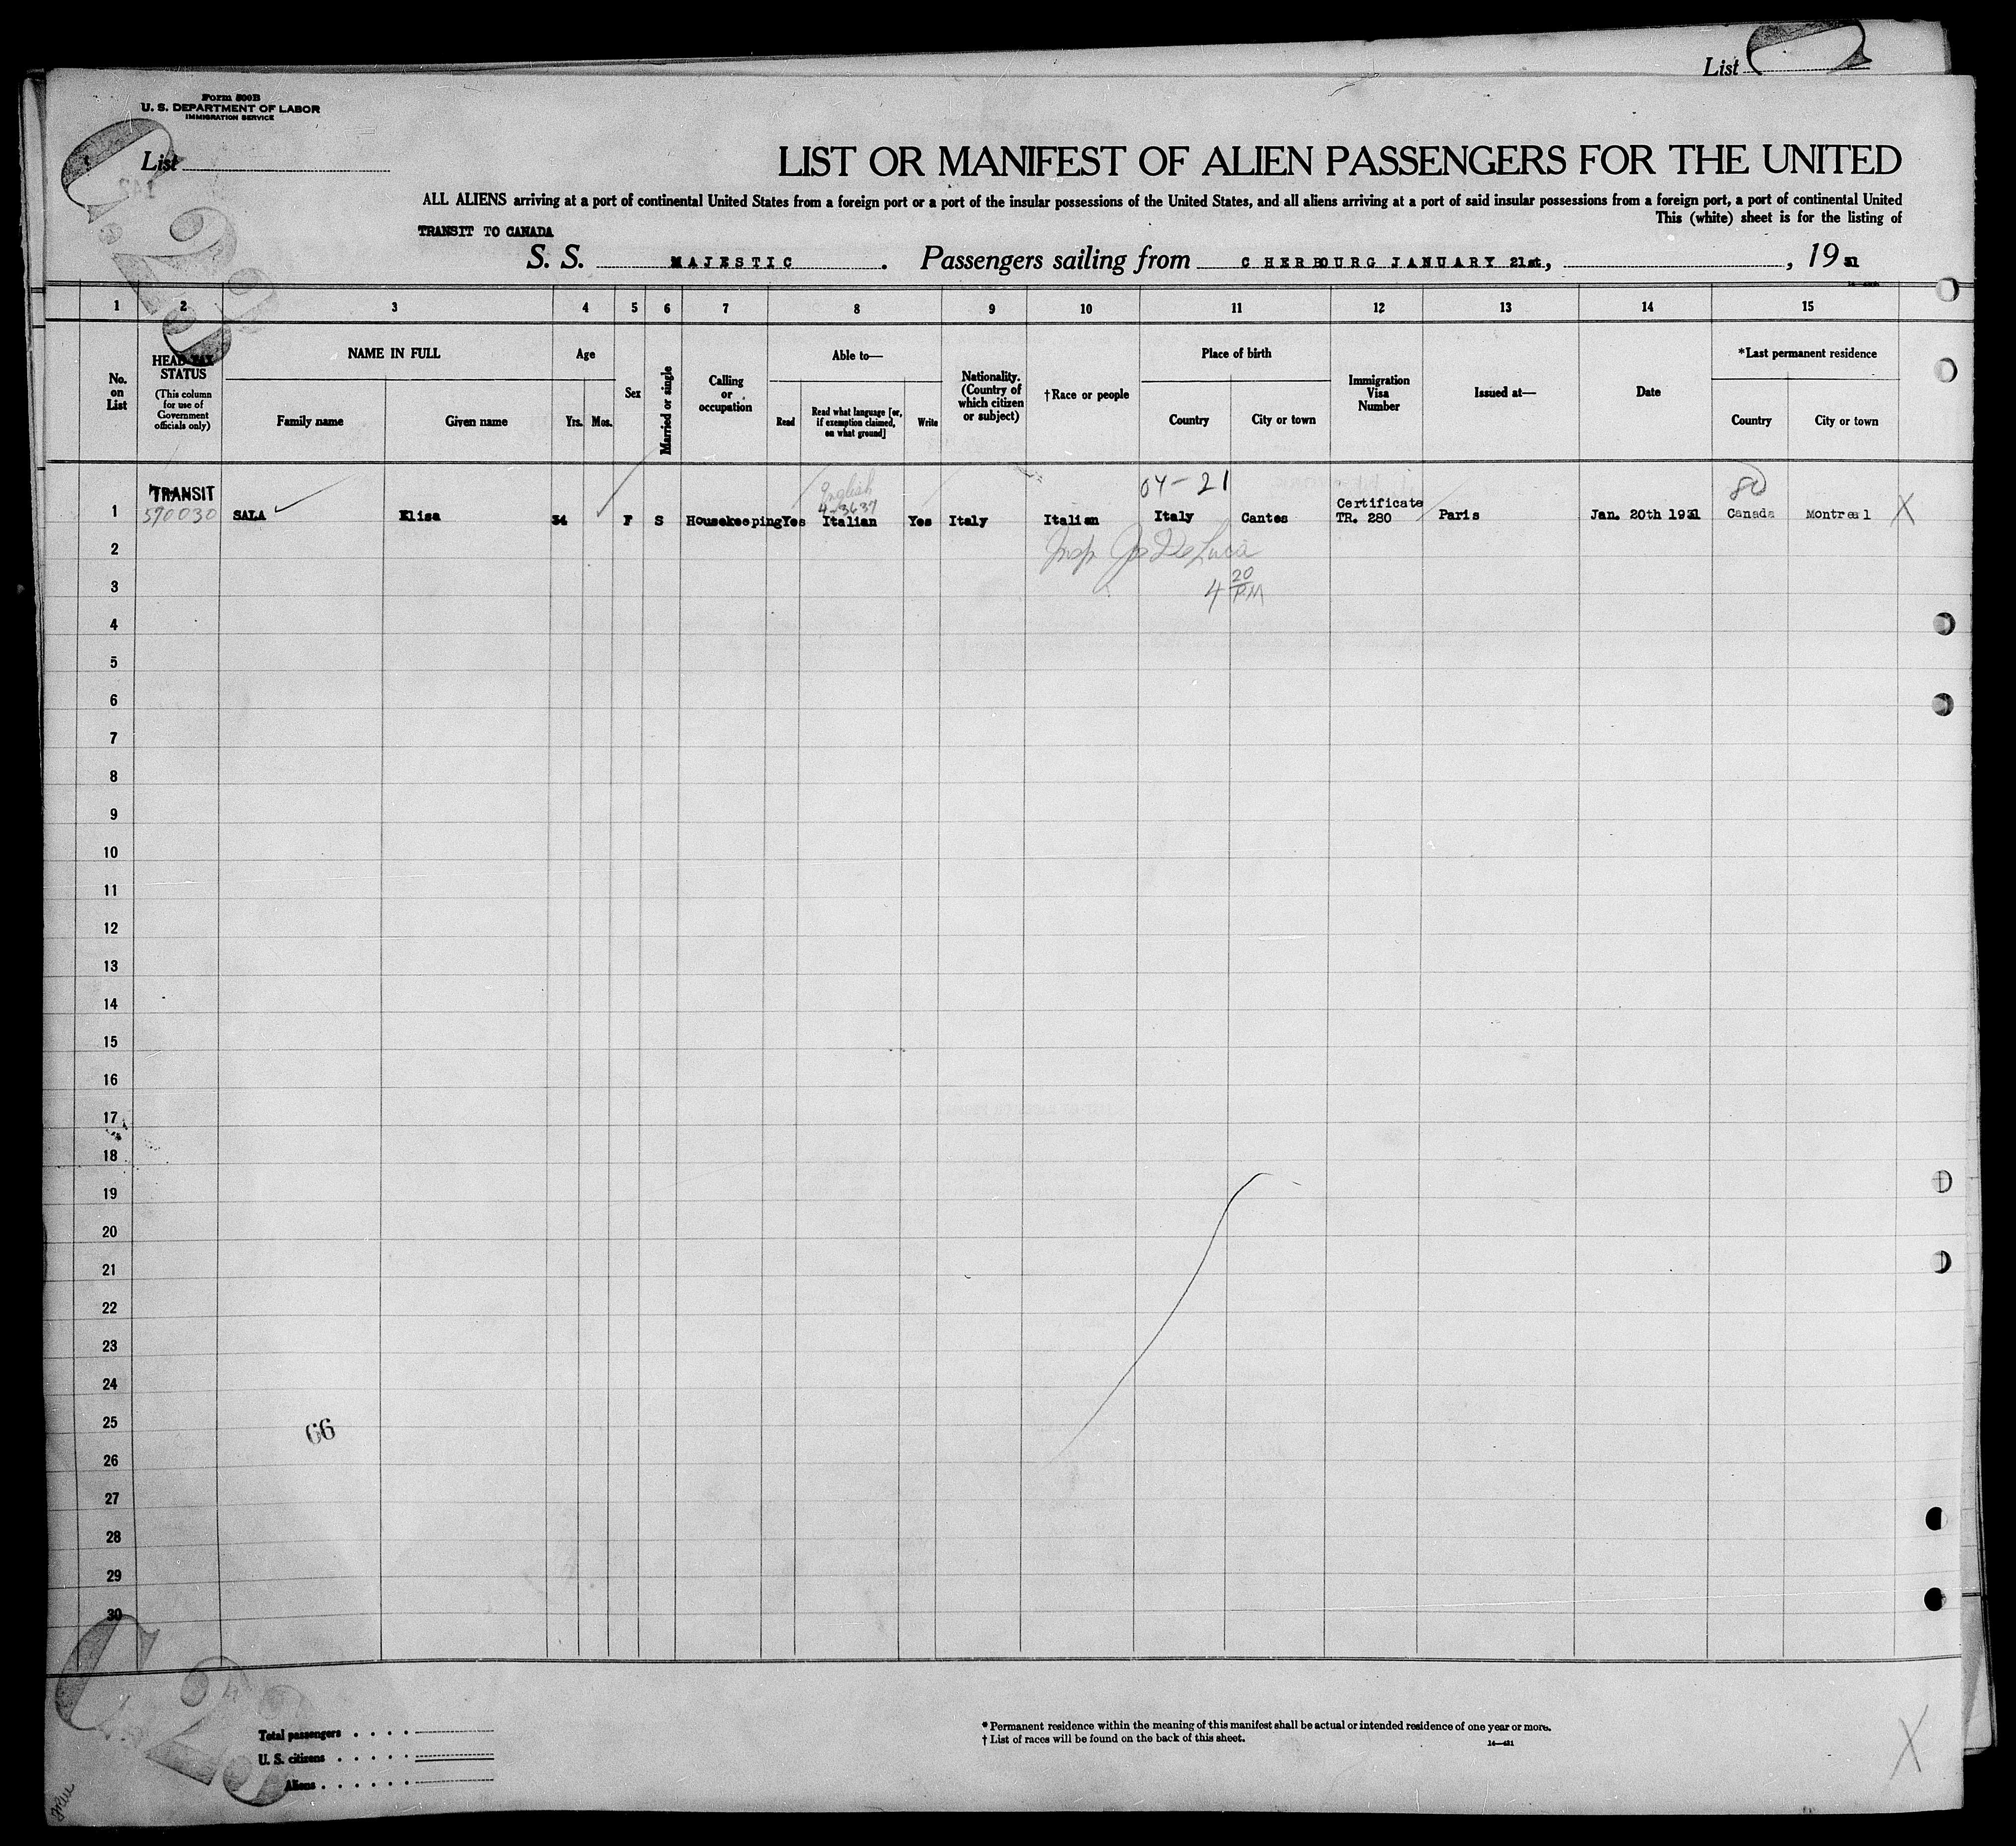 List
Form 500B
U. S. DEPARTMENT OF LABOR
IMMIGRATION SERVICE
List
LIST OR MANIFEST OF ALIEN PASSENGERS FOR THE UNITED
ALL ALIENS arriving at a port of continental United States from a foreign port or a port of the insular possessions of the United States, and all aliens arriving at a port of said insular possessions from a foreign port, a port of continental United
This (white) sheet is for the listing of
TRANSIT TO CANADA
S. S. MAJESTIC. Passengers sailing from CHERBOURG JANUARY 21st, , 19 31
1 2 3 4 5 6 7 8 9 10 11 12 13 14 15
No. on List
HEAD-TAX STATUS
(This column for use of Government officials only)
NAME IN FULL
Family name
Given name
Age
Yrs. Mos.
Sex
Married or single
Calling or occupation
Able to—
Read
Read what language [or, if exemption claimed, on what ground]
Write
Nationality. (Country of which citizen or subject)
†Race or people
Place of birth
Country
City or town
Immigration Visa Number
Issued at—
Date
*Last permanent residence
Country
City or town
TRANSIT English 04-21 80
590030 4-3637 Certificate
1 SALA Elisa 34 F S Housekeeping Yes Italian Yes Italy Italian Italy Cantes TR. 280 Paris Jan. 20th 1931 Canada Montreal X
2 Insp Jos De Luca
3 4 20 PM
4
5
6
7
8
9
10
11
12
13
14
15
16
17
18
19
20
21
22
23
24
25
66
26
27
28
29
30
Total passengers
U. S. citizens
Aliens
* Permanent residence within the meaning of this manifest shall be actual or intended residence of one year or more.
† List of races will be found on the back of this sheet.
14—421
X